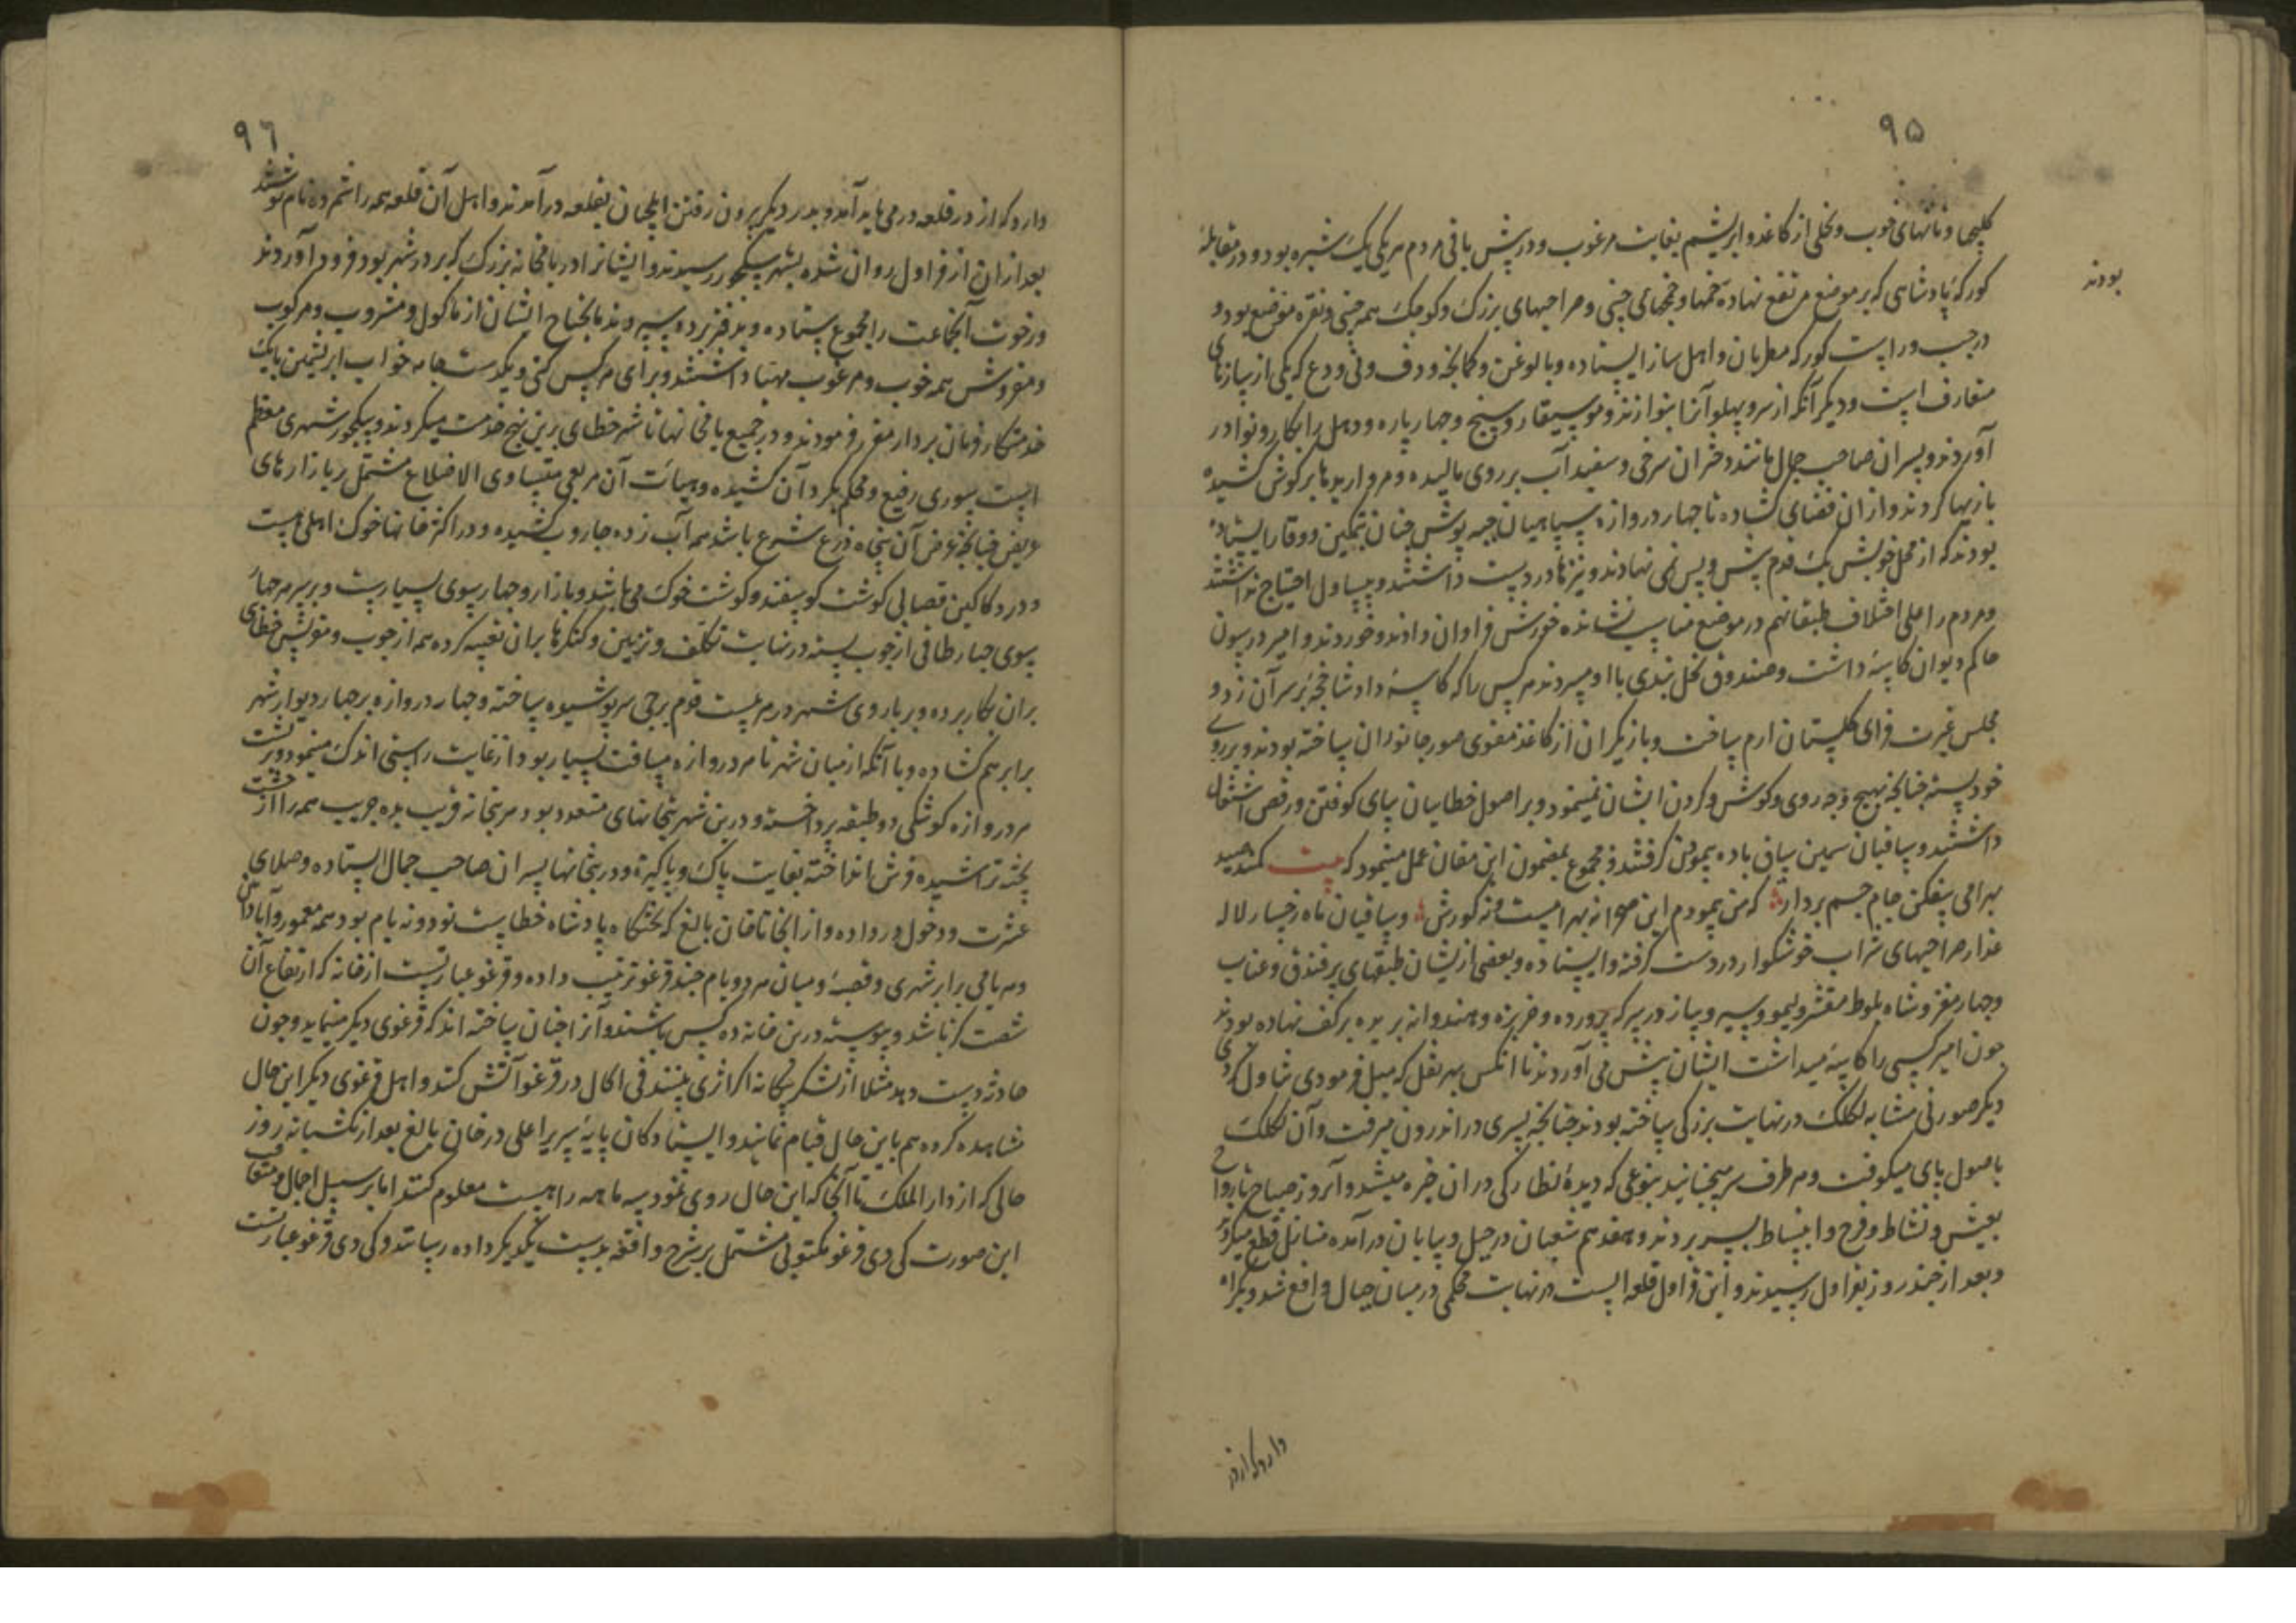 ۹۵
کلیچها و نانهای خوب و نخلی از کاغذ و ابریشم بغایت مرغوب و در پیش باقی مردم هر یکی یک شیره بود و در مقابله
کورکهٔ پادشاهی که بر موضع مرتفع نهاده خمها و خمچهای چینی و صراحیهای بزرک و کوچک همه چینی و نقره موضع بود و
بودند
در چپ و راست کورکه مطربان و اهل ساز ایستاده و با لوغن و کمانچه و دف و نی و دع که یکی از سازهای
متعارف است و دیکر آنکه از سر و پهلو آنرا بنوازند و موسیقار و سنج و چهار پاره و دهل را بکار و نوا در
آوردند و پسران صاحب جمال مانند دختران سرخی و سفید آب بر روی مالیده و مرواریدها بر کوش کشیده
بازیها کردند و از ان فضای کشاده تا چهار دروازه سپاهیان جبه پوش چنان بتمکین و وقار ایستاده
بودند که از محل خویش یک قدم پیش و پس نمی نهادند و نیزها در دست داشتند و بیساول احتیاج نداشتند
و مردم را علی اختلاف طبقاتهم در موضع مناسب نشانده خورش فراوان دادند و خوردند و امیر درسون
حاکم دیوان کاسهٔ داشت و صندوق نخل بندی با او میبردند هر کس را که کاسهٔ داد شاخچهٔ بر سر آن زد و
مجلس غیرت فزای کلستان ارم ساخت و بازیکران از کاغذ مقوی صور جانوران ساخته بودند و بر روی
خود بسته چنانچه بهیچ وجه روی و کوش و کردن ایشان نمینمود و بر اصول خطاییان بپای کوفتن و رقص اشتغال
داشتند و ساقیان سیمین ساق باده پیمودن کرفتند و مجموع بمضمون این مقال عمل مینمود که بیت کمند صید
بهرامی بیفکن جام جم بردار که من پیمودم این صحرا نه بهرامست و نه کورش و ساقیان ماه رخسار لاله
عذار صراحیهای شراب خوشکوار در دست کرفته و ایستاده و بعضی از یشان طبقهای پر فندق و عناب
و چهار مغز و شاه بلوط مقشر و لیمو و سیر و پیاز در سرکه پرورده و خربزه و هندوانه بریده بر کف نهاده بودند
چون امیر کسی را کاسهٔ میداشت ایشان پیش می آوردند تا آنکس بهر نقل که میل فرمودی تناول کردی
دیکر صورتی مشابه لکلک در نهایت بزرکی ساخته بودند چنانچه پسری در اندرون میرفت و آن لکلک
باصول پای میکوفت و هر طرف سر میجنبانید بنوعی که دیدهٔ نظارکی در ان خیره میشد و آنروز صباح تا رواح
بعیش و نشاط و فرح و انبساط بسر بردند و هفدهم شعبان در چیل و بیابان در آمده منازل قطع میکردند
و بعد از چند روز بقراول رسیدند و این قراول قلعه ایست در نهایت محکمی در میان جبال واقع شده و یک راه
دارد که از در
۹٦
دارد که از در قلعه در می باید آمد و بدر دیکر بیرون رفتن ایلچیان بقلعه در آمدند و اهل آن قلعه همه را شمرده نام نوشتند
بعد از ان از قراول روان شده بشهر سیکجور رسیدند و ایشانرا در یامخانه بزرک که بر در شهر بود فرود آوردند
و رخوت آنجماعت را مجموع ستاده و بدفتر برده سپردند ما یحتاج ایشان از ماکول و مشروب و مرکوب
و مفروش همه خوب و مرغوب مهیا داشتند و برای هر کس کتی و یکدست جامه خواب ابریشمین با یک
خدمتکار فرمان بردار مقرر فرمودند و در جمیع یامخانها تا شهر خطای برین نهج خدمت میکردند و سیکجور شهری معظم
است سوری رفیع و محکم بکرد آن کشیده و هیات آن مربعی متساوی الاضلاع مشتمل بر بازارهای
عریض چنانچه عرض آن پنجاه ذرع شرع باشد همه آب زده جاروب کشیده و در اکثر خانها خوک اهلی هست
و در دکاکین قصابی کوشت کوسفند و کوشت خوک می باشد و بازار و چهار سوی بسیارست و بر سر هر چهار
سوی چهار طاقی از چوب بسته در نهایت تکلف و تزیین و کنکرها بران تعبیه کرده همه از چوب و مقرنس خطای
بران بکار برده و بر باروی شهر در هر بیست قدم برجی سرپوشیده ساخته و چهار دروازه بر چهار دیوار شهر
برابر هم کشاده و با آنکه از میان شهر تا هر دروازه مسافت بسیار بود از غایت راستی اندک مینمود و بر پشت
هر دروازه کوشکی دو طبقه پرداخته و درین شهر بتخانهای متعدد بود هر بتخانه قریب بده جریب همه را از خشت
پخته تراشیده فرش انداخته بغایت پاک و پاکیزه و در بتخانها پسران صاحب جمال ایستاده و صلای
عشرت و دخول در داده و از انجا تا خان بالغ که تختکاه پادشاه خطاست نود و نه یام بود همه معمور و آبادان
و هر یامی برابر شهری و قصبهٔ و میان هر دو یام چند قرغو ترتیب داده و قرغو عبارتست از خانه که ارتفاع آن
شصت کز باشد و پیوسته درین خانه ده کس باشند و آنرا چنان ساخته اند که قرغوی دیکر مینماید و چون
حادثه دست دهد مثلا از لشکر بیکانه اکر اثری بینند فی الحال در قرغو آتش کنند و اهل قرغوی دیکر این حال
مشاهده کرده هم باین حال قیام نمایند و ایستادکان پایهٔ سریر اعلی در خان بالغ بعد از یکشبانه روز
حالی که از دار الملک تا آنجا که این حال روی نمود سه ماهه راهست معلوم کنند اما بر سبیل اجمال و متعاقب
این صورت کی دی قرغو مکتوبی مشتمل بر شرح واقعه بدست یکدیکر داده رسانند و کی دی قرغو عبارتست